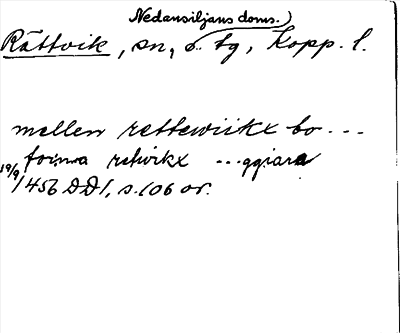 Nedansiljans doms.)
Rättvik, sn, o. tg, Kopp. l.
mellen rettewiikx bo ---
forma retwikx ...ggiara
19/9 1456 DD1, s. 106 or.